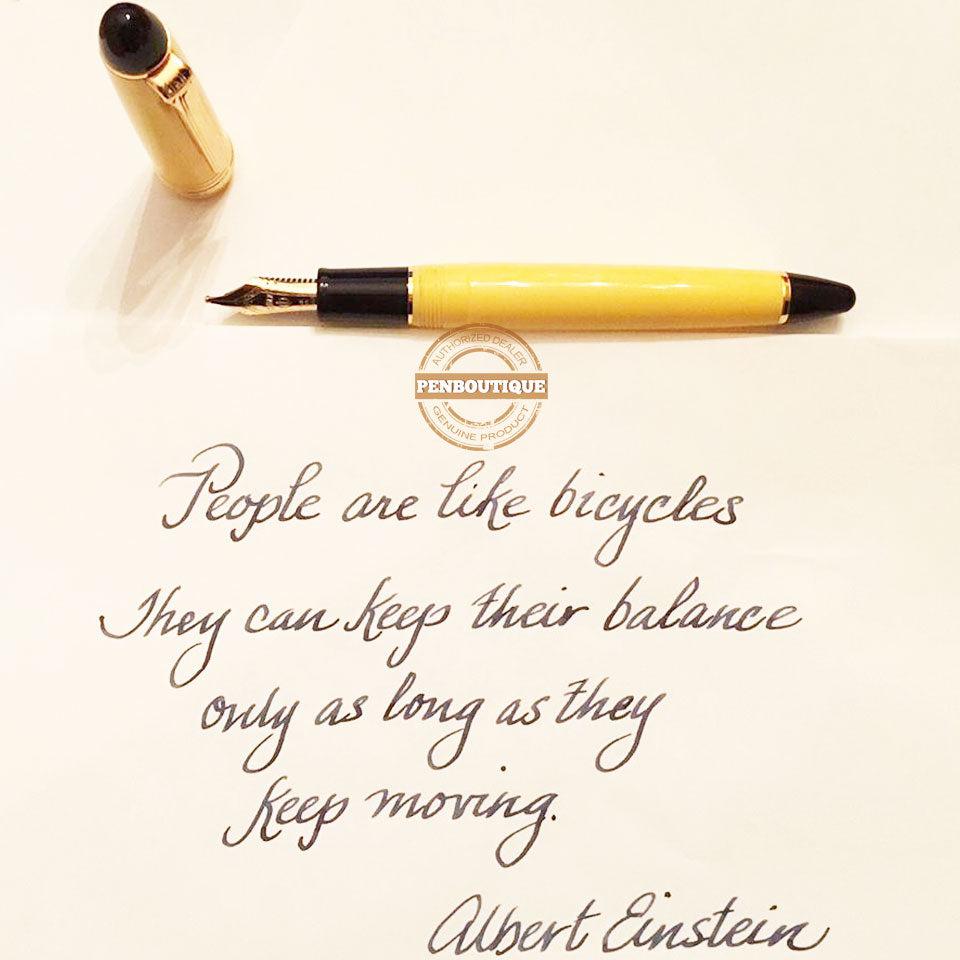 AUTHORIZED DEALER
PENBOUTIQUE
GENUINE PRODUCT
People are like bicycles
They can keep their balance
only as long as they
keep moving.
Albert Einstein